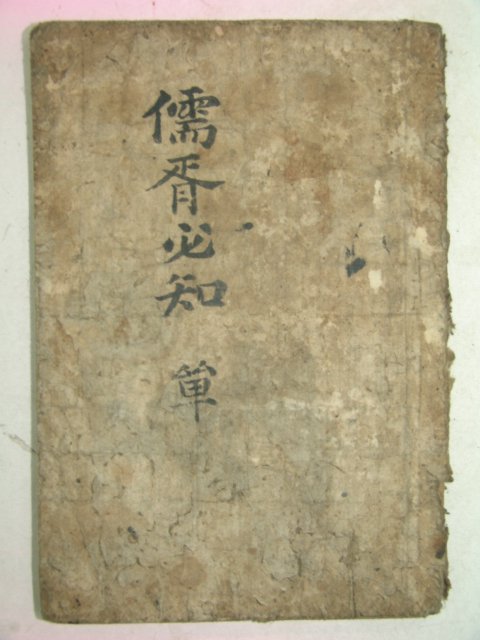 儒胥必知 單